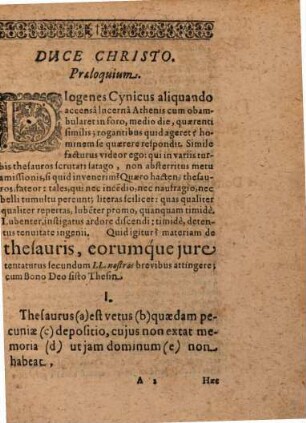 DUCE CHRISTO.
Præloquium.
DIogenes Cynicus aliquando
accensâ lucernâ Athenis cum obam-
bularet in foro, medio die, quærenti
similis; rogantibus quid ageret? ho-
minem se quærere respondit. Simile
facturus videor ego: qui in variis tur-
bis thesauros scrutari satago, non absterritus metu
amissionis, si quid invenerim! Quæro hacten9 thesau-
ros, fateor: tales, qui nec incêdio, nec naufragio, nec
belli tumultu pereunt; literas scilicet: quas qualiter
qualiter repertas, lubēter promo, quanquam timidè.
Lubenter, instigatus ardore discendi: timidè, deten-
tus tenuitate ingenii. Quid igitur? materiam de
thesauris, eorumque jure
tentaturus secundum LL. nostras brevibus attingere;
cum Bono Deo sisto Thesin
I.
Thesaurus (a) est vetus (b) quædam pe-
cuniæ (c) depositio, cujus non extat me-
moria (d) ut jam dominum (e) non
habeat.
A 2 Hæc